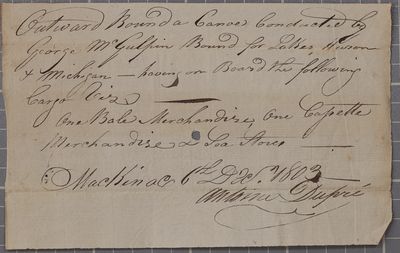 Outward Bound a Canoe Conducted by
George McGulpin Bound for Lakes Huron
& Michigan — having on Board the following
Cargo Viz
One Bale Merchandize, One Cassette
Merchandize & Sea Stores
Mackinac 6th 1803
Dupré